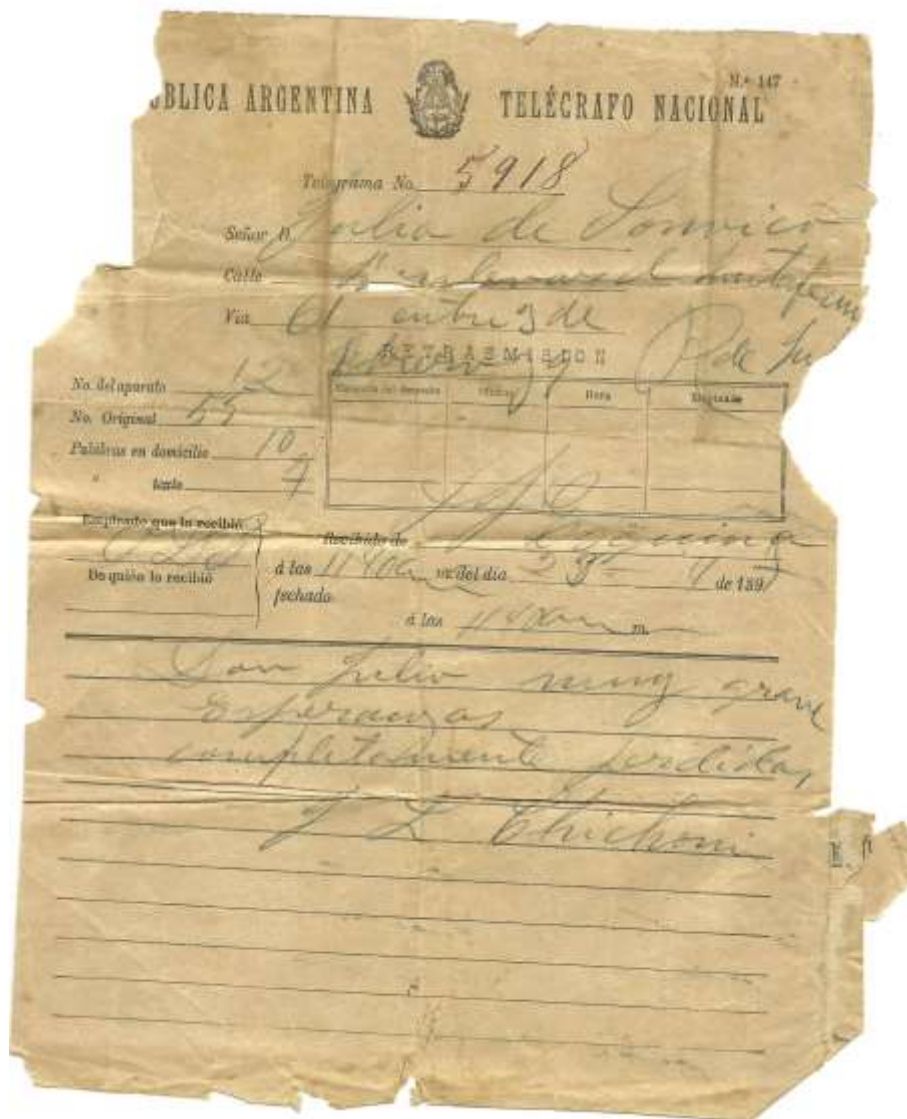 N.º 147
ÚBLICA ARGENTINA TELÉGRAFO NACIONAL
Telegrama No. 5918
Señor D. Julia de Sonvico
Calle
Via entre 3 de
Febrero y P de
RETRASMISION
No. del aparato 12
No. Original 55
Palabras en domicilio 10
" texto 7
Hora
Empleado
Empleado que lo recibió
De quién lo recibió
Recibido de Esquina
á las 11 40 a m del dia 23 de 189
fechado
á las 11 m.
Don Julio muy grave
Esperanzas
completamente perdidas
J L Chichoni